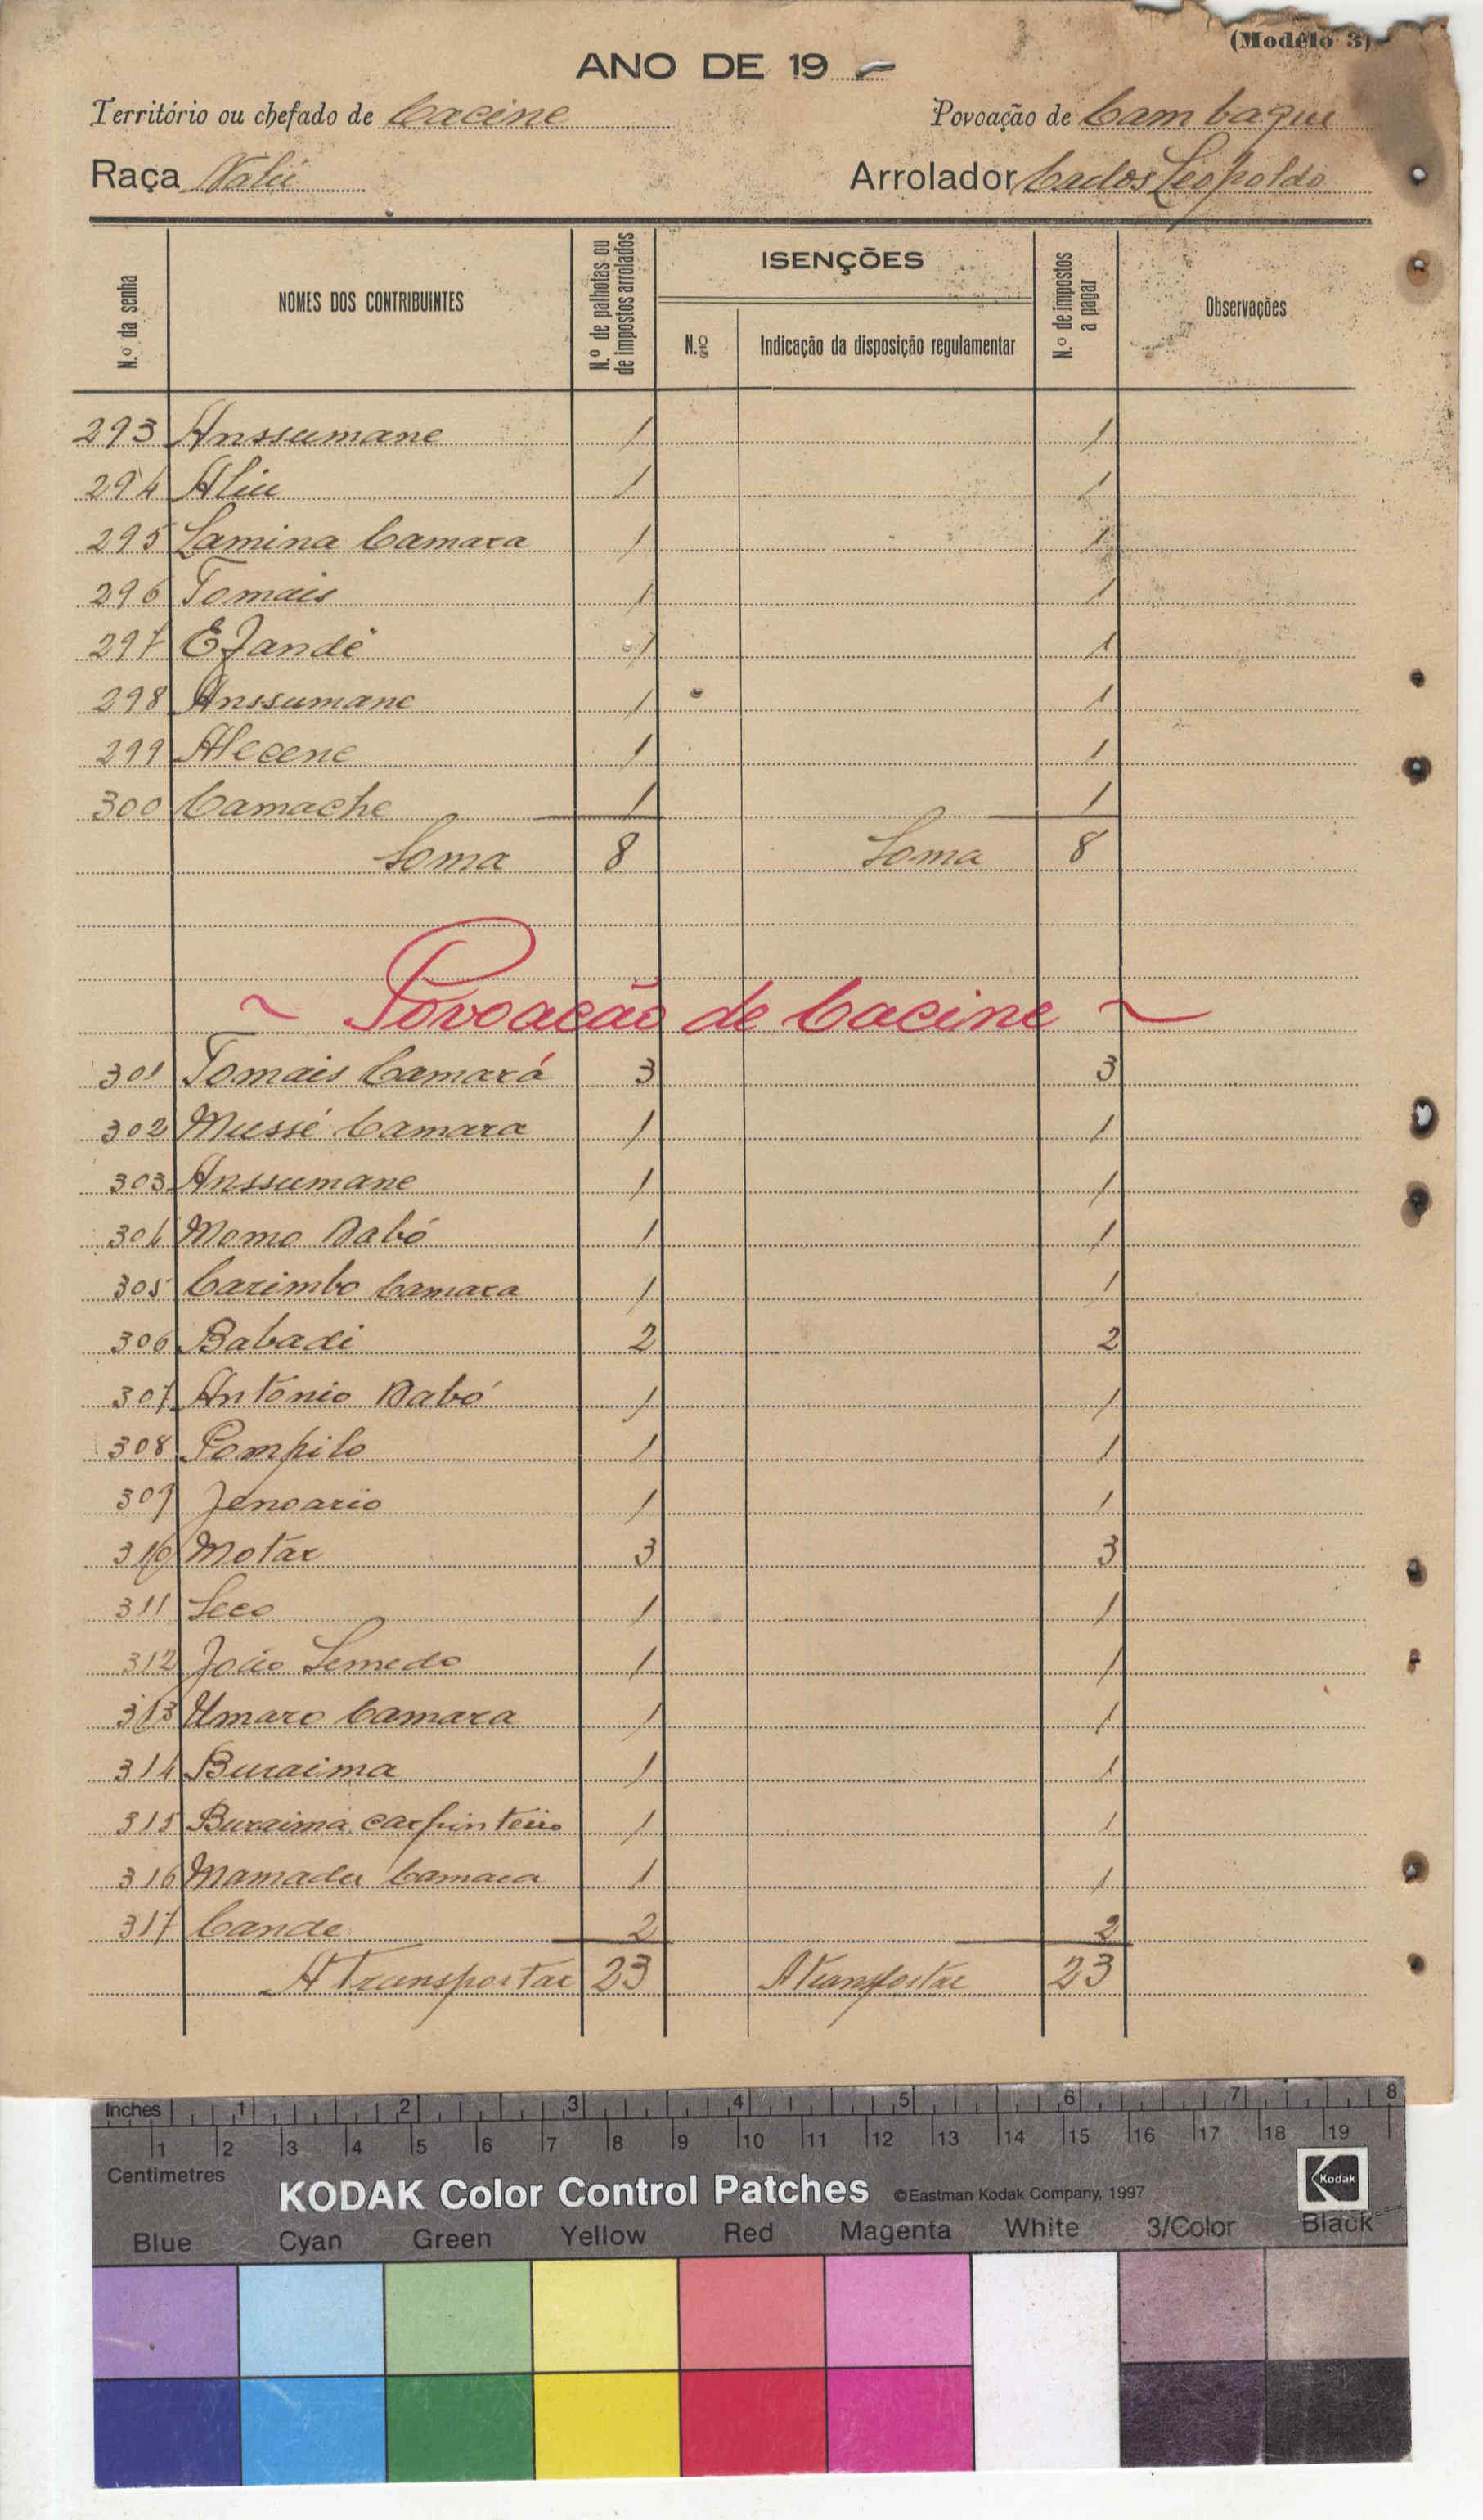 (Modêlo 3)
ANO DE 19 -
Território ou chefado de Cacine Povoação de Cambaque
Raça Nalú Arrolador Carlos Leopoldo
N.º da senha
NOMES DOS CONTRIBUINTES
N.º de palhotas ou de impostos arrolados
ISENÇÕES
N.º
Indicação da disposição regulamentar
N.º de impostos a pagar
Observações
293 Anssumane 1 1
294 Aliu 1 1
295 Lamina Camara 1 1
296 Tomais 1 1
297 Efandé 1 1
298 Anssumane 1 1
299 Alecene 1 1
300 Camache 1 1
Soma 8 Soma 8
~ Povoacão de Cacine ~
301 Tomais Camará 3 3
302 Mussé Camara 1 1
303 Anssumane 1 1
304 Momo Dabó 1 1
305 Carimbo Camara 1 1
306 Babadi 2 2
307 António Dabó 1 1
308 Pompilo 1 1
309 Jenoario 1 1
310 Motar 3 3
311 Seco 1 1
312 João Semedo 1 1
313 Umaro Camara 1 1
314 Buraima 1 1
315 Buraima carpinteiro 1 1
316 Mamadu Camara 1 1
317 Cande 2 2
A Transportar 23 A Transportar 23
Inches 1 2 3 4 5 6 7 8
1 2 3 4 5 6 7 8 9 10 11 12 13 14 15 16 17 18 19
Centimetres
KODAK Color Control Patches ©Eastman Kodak Company, 1997 Kodak
Blue Cyan Green Yellow Red Magenta White 3/Color Black